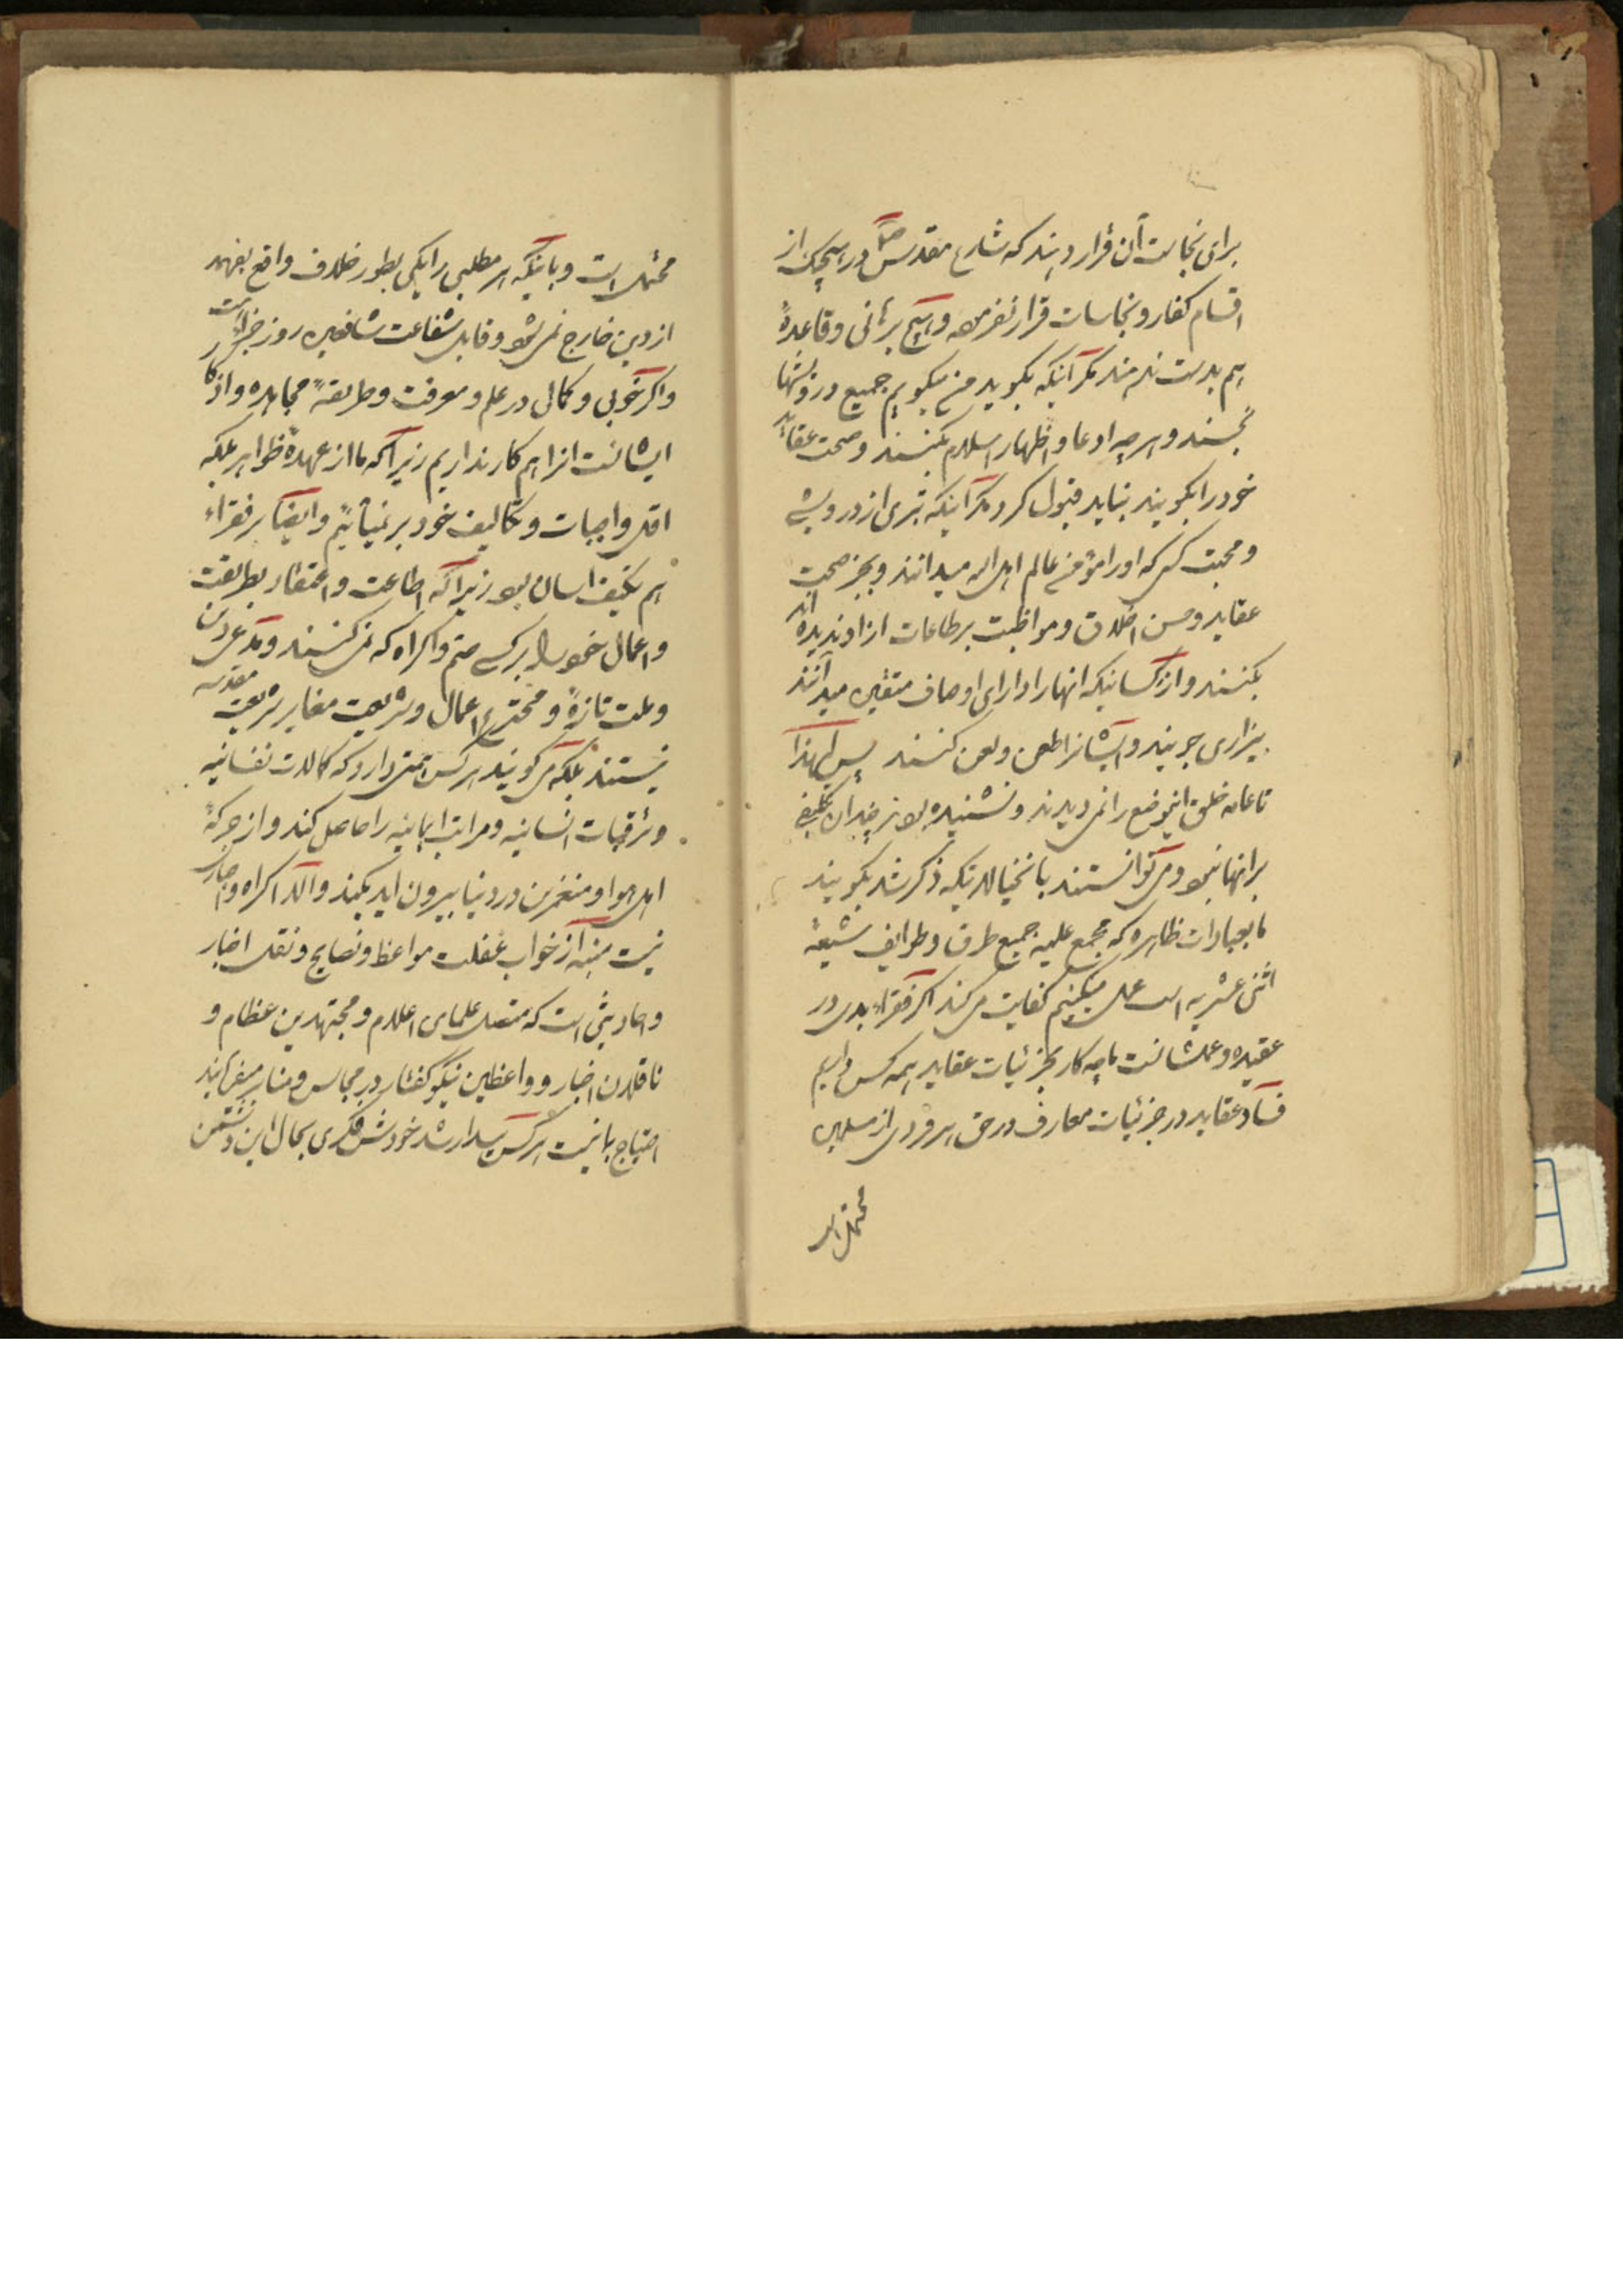 برای نجاست آن قرار دهند که شارع مقدس ص در هیچیک از
اقسام کفار و نجاسات قرار نفرموده و هیچ برهانی و قاعدهٔ
هم بدست ندهند مگر آنکه بگوید من میگویم جمیع درویشها
نجسند و هر چه ادعا و اظهار اسلام بکنند و صحت عقاید
خود را بگویند نباید قبول کرد مگر آنکه تبری از درویشی
و محبت کسی که او را مؤمن عالم اهل الله میدانند و بجز صحت
عقاید و حسن اخلاق و مواظبت بر طاعات از او ندیده‌اند
بکنند و از کسانیکه انها را دارای اوصاف متقین میدانند
بیزاری جویند و ایشانرا طعن و لعن کنند پس لهذا
تا عامه خلق اینوضع را نمی دیدند و نشنیده بودند چندان تکلیفی
بر انها نبود و می توانستند بانخیالاتیکه ذکر شد بگویند
ما بعبادات ظاهره که مجمع علیه جمیع طرق و طوایف شیعهٔ
اثنی عشریه است عمل میکنیم کفایت می کند اگر فقراء بدی در
عقیده و عملشانست ما چه کار بجزئیات عقاید همه کس داریم
فساد عقاید در جزئیات معارف در حق هر فردی از مسلمین
محتمل است
محتمل است و باینکه هر مطلبی را یکی بطور خلاف واقع بفهمد
از دین خارج نمی شود و قابل شفاعت شافعین روز جزا است
و اگر خوبی و کمالی در علم و معرفت و طریقهٔ مجاهده و اذکار
ایشانست انرا هم کار نداریم زیرا که ما از عهدهٔ ظواهر بلکه
اقل واجبات و تکالیف خود بر نمیآئیم و ایضا بر فقراء
هم تکلیف اسان بود زیرا که اطاعت و اعتقاد بطریقت
و اعمال خود را بر کسی حتم و اکراه که نمی کنند و مدعی دین
و ملت تازهٔ و مخترع اعمال و شریعت مغایر شریعت مقدسه
نیستند بلکه می گویند هر کس همتی دارد که کمالات نفسانیه
و ترقیات انسانیه و مراتب ایمانیه را حاصل کند و از جرگهٔ
اهل هوا و منغمرین در دنیا بیرون اید بکند و الا اکراه و اجبار
نیست منبه از خواب غفلت مواعظ و نصایح و نقل اخبار
و احادیثی است که متصل علمای اعلام و مجتهدین عظام و
ناقلان اخبار و واعظین نیکو گفتار در مجالس و منابر میفرمایند
احتیاج بما نیست هر کس بیدار شد خودش فکری بحال این